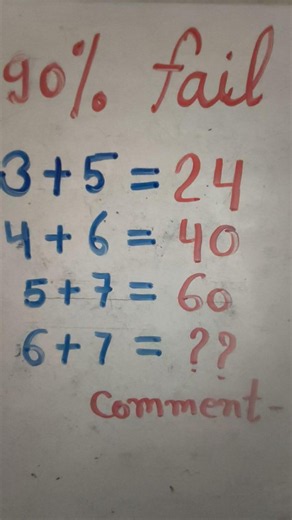 90% fail
3+5=24
4+6=40
5+7=60
6+7=??
comment-